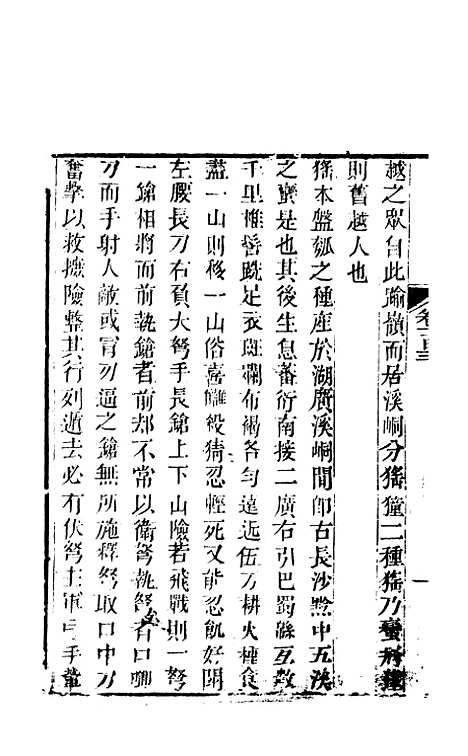 越之眾自此踰嶺而居溪峒分猺獞二種猺乃蠻荆獞
則舊越人也
猺本盤瓠之種產於湖廣溪峒間卽古長沙黔中五溪
之蠻是也其後生息蕃衍南接二廣右引巴蜀緜亙數
千里椎髻跣足衣斑斕布褐各勻遠近伍刀耕火種食
盡一山則移一山俗喜讎殺猜忍輕死又能忍飢好鬬
左腰長刀右負大弩手長鎗上下山險若飛戰則一弩
一鎗相將而前執鎗者前却不常以衛弩執弩者口啣
刀而手射人敵或冒刃逼之鎗無所施釋弩取口中刀
奮擊以救撫險整其行列遁去必有伏弩土軍弓手輩